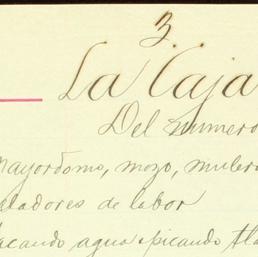 3.
La Caja
Del numero
Mayordomo, mozo, mulero
eladores de labor
acando agua picando tla